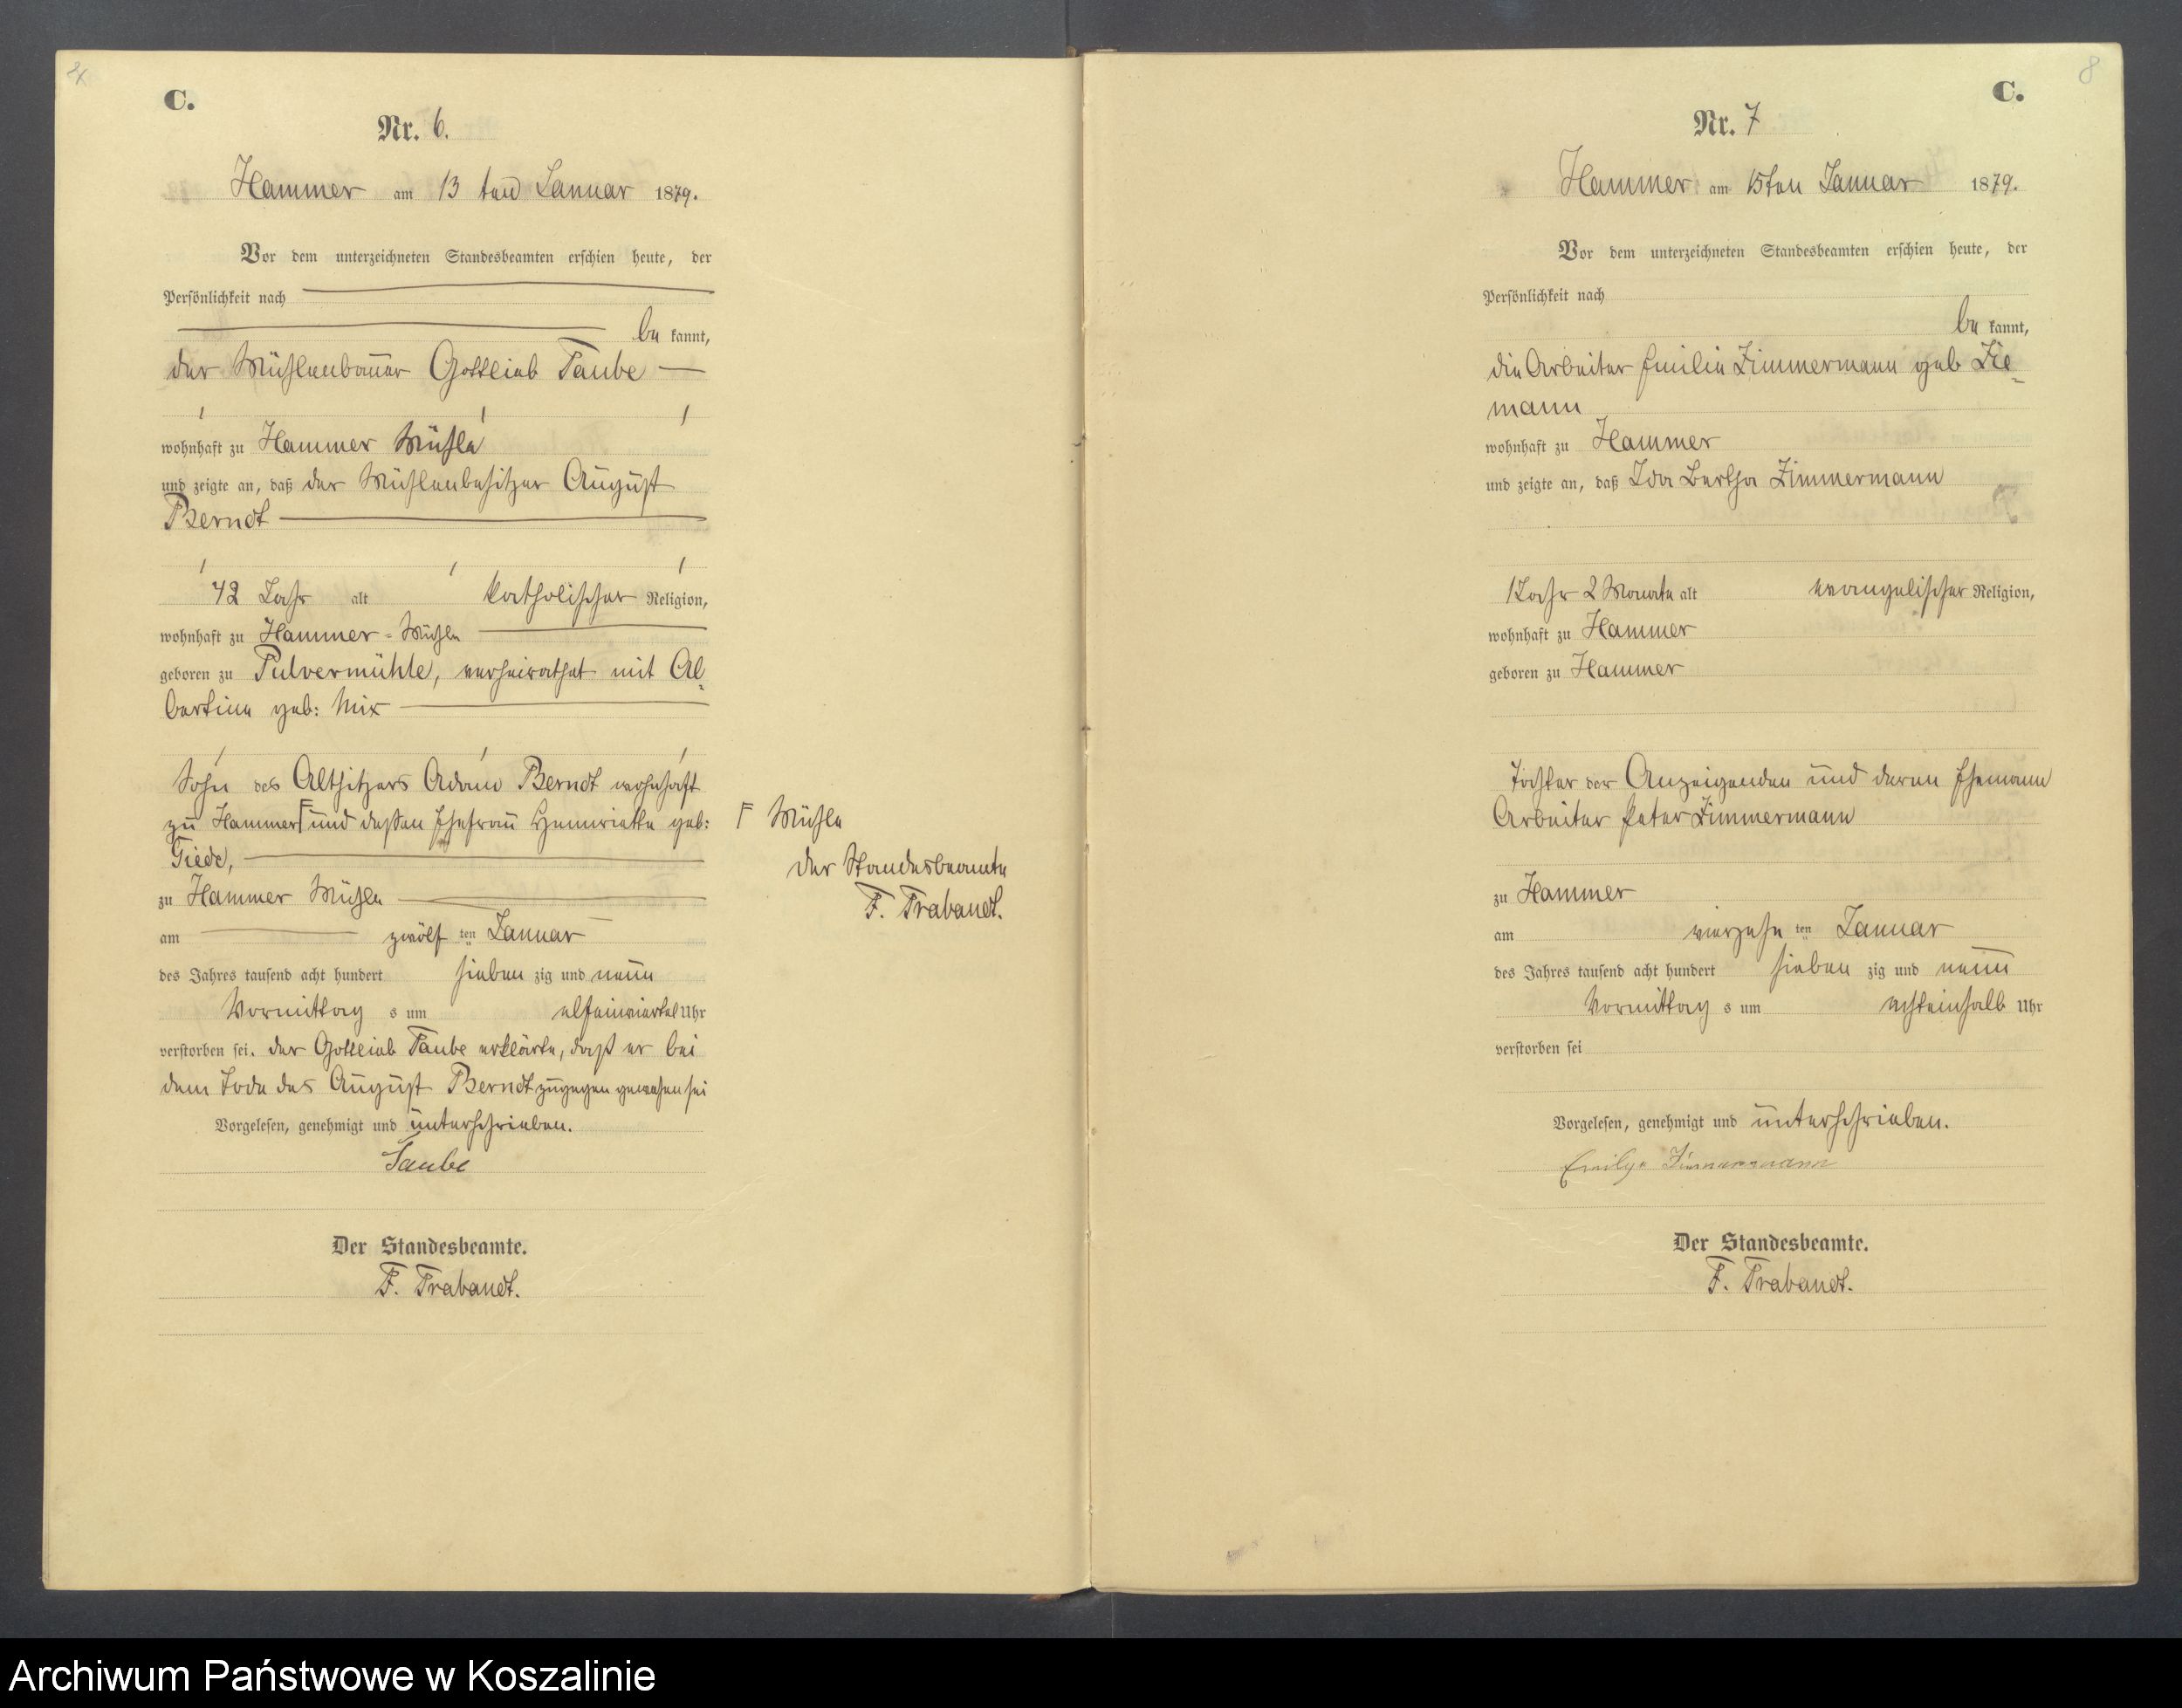 C.
Nr. 6.
Hammer am 13 ten Januar 1879.
Vor dem unterzeichneten Standesbeamten erschien heute, der
Persönlichkeit nach
be kannt,
der Mühlenbauer Gottlieb Taube
wohnhaft zu Hammer Mühle
und zeigte an, daß der Mühlenbesitzer August
Berndt
42 Jahr alt katholischer Religion,
wohnhaft zu Hammer-Mühle
geboren zu Pulvermühle, verheirathet mit Al-
bertine geb: Mix
Sohn des Altsitzers Adam Berndt wohnhaft
zu Hammer Γ und deßen Ehefrau Hennriette geb:
Tiede,
zu Hammer Mühle
am zwölf ten Januar
des Jahres tausend acht hundert sieben zig und neun
Vormittag s um elfeinviertel Uhr
verstorben sei. der Gottlieb Taube erklärte, daß er bei
dem Tode des August Berndt zugegen gewesen sei
Vorgelesen, genehmigt und unterschrieben.
Taube
Der Standesbeamte.
F. Trabandt.
Γ Mühle
Der Standesbeamte
F. Trabandt.
8
C.
Nr. 7
Hammer am 15ten Januar 1879.
Vor dem unterzeichneten Standesbeamten erschien heute, der
Persönlichkeit nach
be kannt,
die Arbeiter Emilie Zimmermann geb Zie-
mann
wohnhaft zu Hammer
und zeigte an, daß Ida Bertha Zimmermann
1 Jahr 2 Monate alt evangelischer Religion,
wohnhaft zu Hammer
geboren zu Hammer
Tochter der Anzeigenden und deren Ehemann
Arbeiter Peter Zimmermann
zu Hammer
am vierzehn ten Januar
des Jahres tausend acht hundert sieben zig und neun
Vormittag s um achteinhalb Uhr
verstorben sei
Vorgelesen, genehmigt und unterschrieben.
Emilye Zimmermann
Der Standesbeamte.
F. Trabandt.
Archiwum Państwowe w Koszalinie